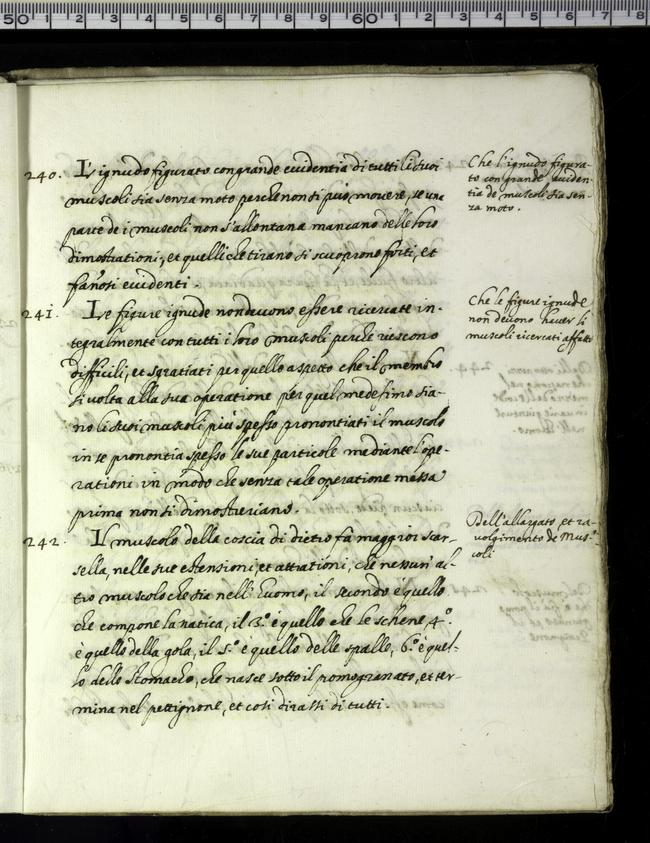 240. L'ignudo figurato con grande euidentia di tutti li suoi
muscoli sia senza moto perche non si può mouere, se una
parte de i muscoli non s'allontana mancano delle loro
dimostrationi, et quelli che tirano si scuoprono forti, et
fansi euidenti.
Che l'ignudo figura-
to con grande euiden-
tia de muscoli sia sen-
za moto.
241. Le figure ignude non deuono essere ricercate in-
tegralmente con tutti i loro muscoli perche riescono
difficili, et sgratiati per quello aspetto che il membro
si volta alla sua operatione per quel medesimo sia-
no li suoi muscoli più spesso pronontiati il muscolo
in se pronontia spesso le sue particole mediante l'ope-
rationi in modo che senza tale operatione messa
prima non si dimosteriano.
Che le figure ignude
non deuono hauer li
muscoli ricercati affatto
242. Il muscolo della coscia di dietro fa maggior scar-
sella, nelle sue estensioni, et attrationi, che nessun' al-
tro muscolo che sia nell' huomo, il secondo è quello
che compone la natica, il 3.º è quello che le schene, 4.º
è quello della gola, il 5.º è quello delle spalle, 6.º è quel-
lo dello stomacho, che nasce sotto il pomogranato, et ter-
mina nel pettignone, et cosi dirassi di tutti.
Dell'allargato, et ra-
uolgimento de Mus-
coli